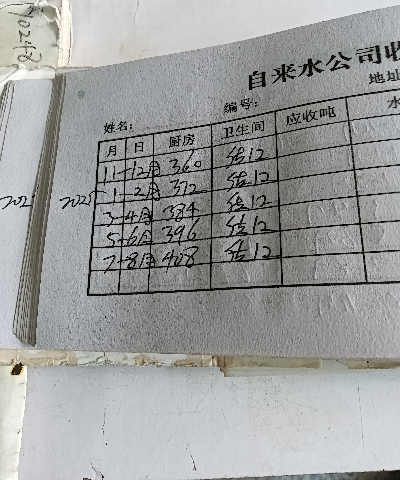 70248
自来水公司收
地址
姓名：
编号：
月 日 厨房 卫生间 应收吨 水
11-12月 360 估12
2025 1-2月 372 估12
3-4月 384 估12
5-6月 396 估12
7-8月 408 估12